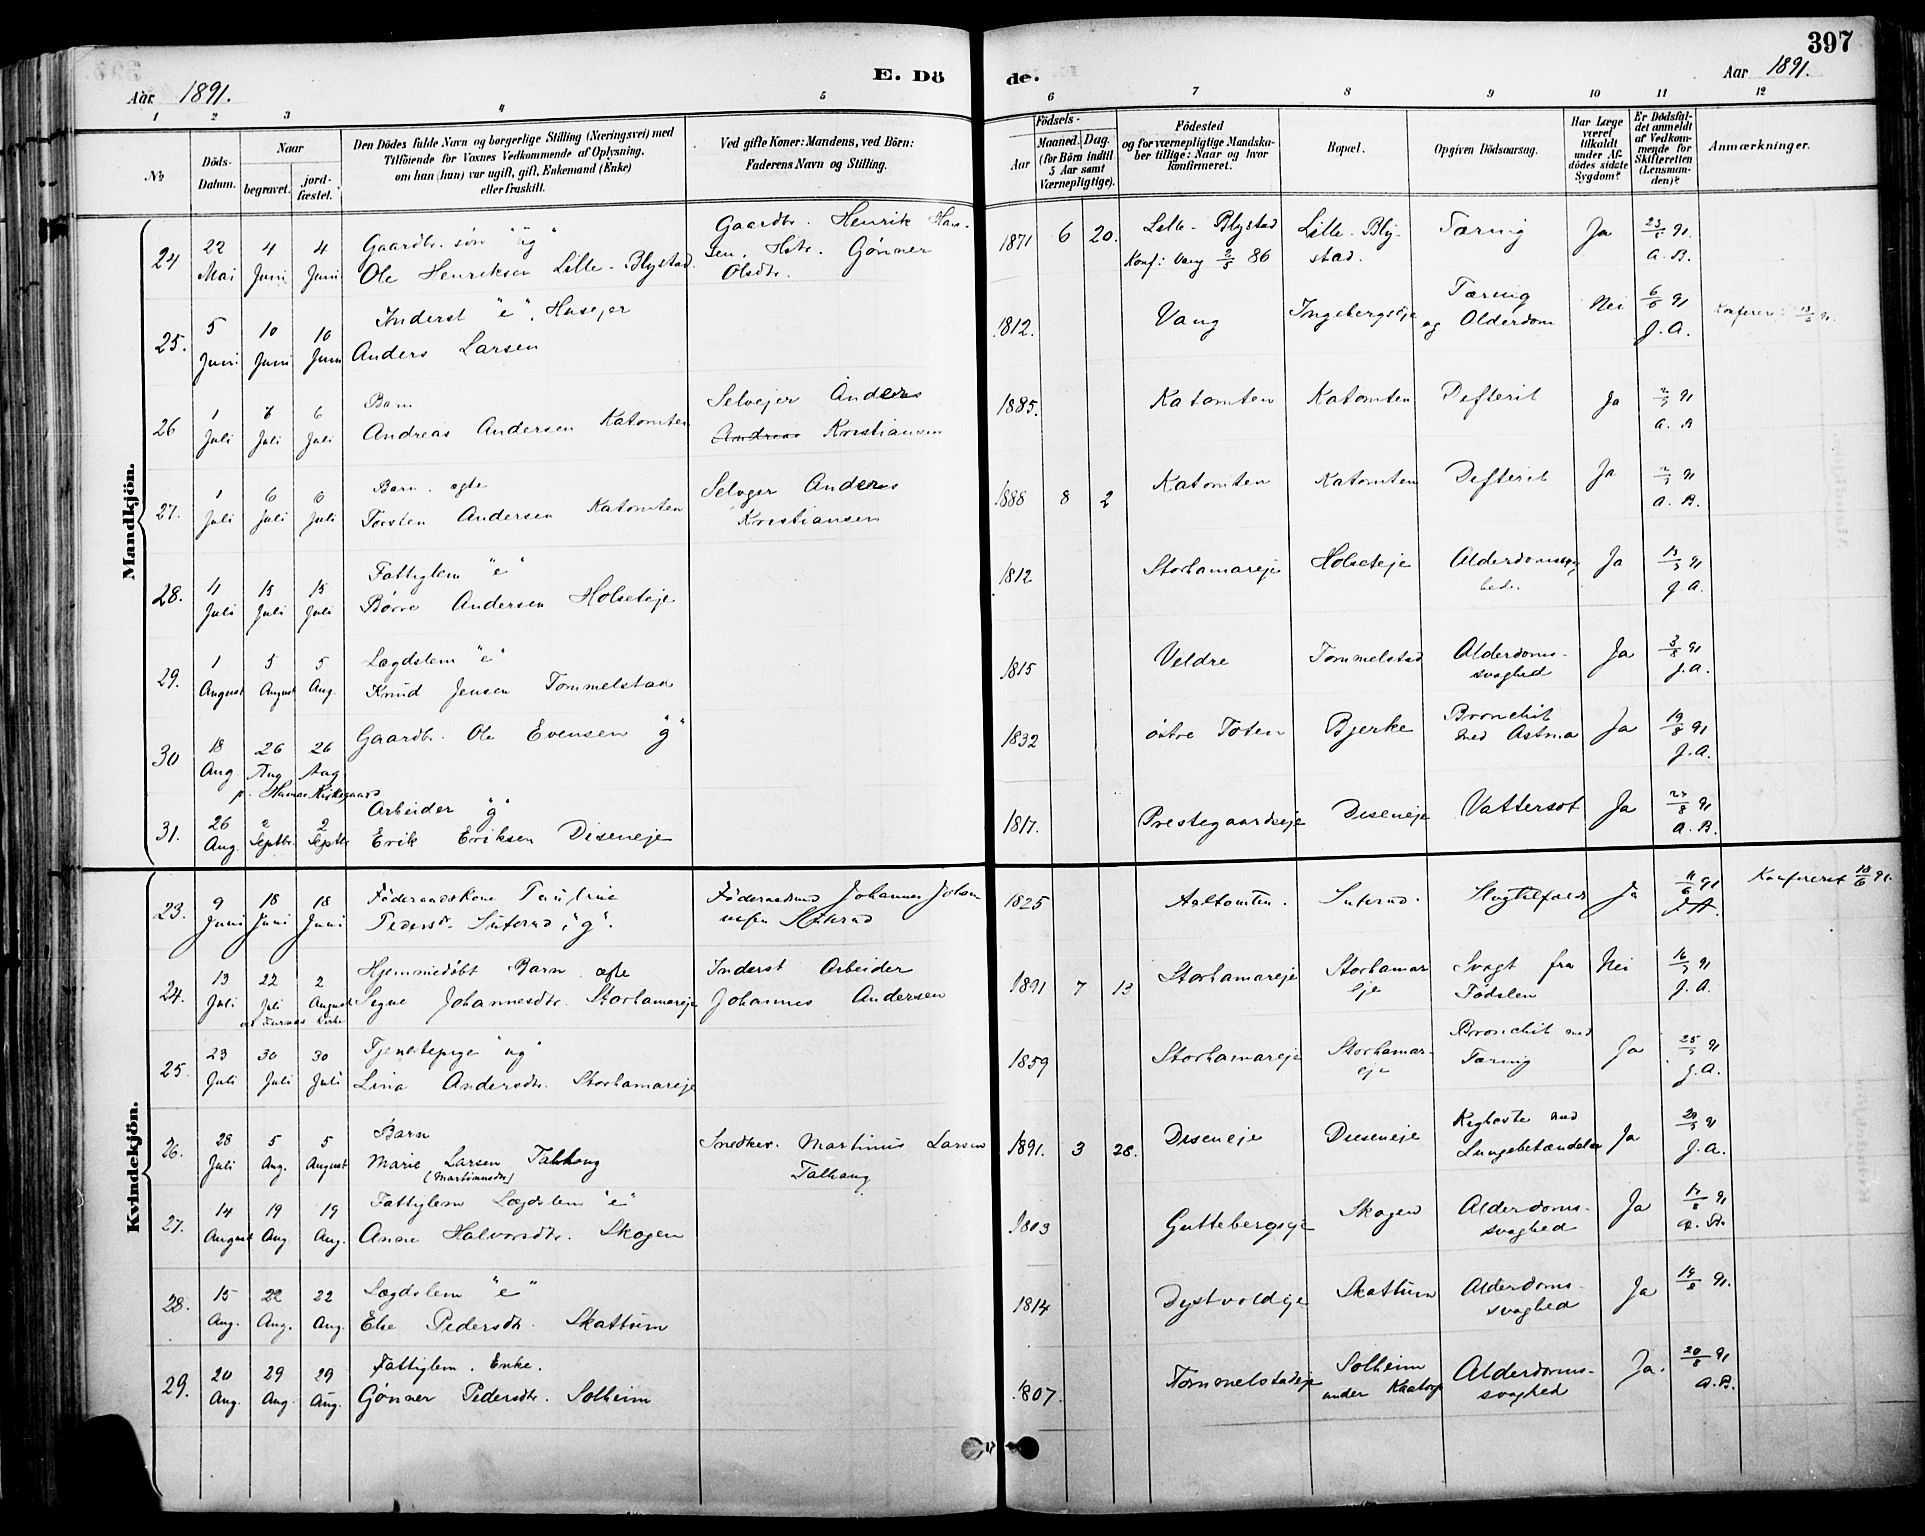 397
Aar 1891.
E. Dö
de.
Aar 1891.
1 2 3 4 5 6 7 8 9 10 11 12
No
Döds-Datum.
Naar
begravet.
jord-fæstet.
Den Dödes fulde Navn og borgerlige Stilling (Næringsvei) med
Tilföiende for Voxnes Vedkommende af Oplysning,
om han (hun) var ugift, gift, Enkemand (Enke)
eller fraskilt.
Ved gifte Koner: Mandens, ved Börn:
Faderens Navn og Stilling.
Födsels-
Aar
Maaned. Dag.
(for Börn indtil
5 Aar samt
Værnepligtige).
Födested
og for værnepligtige Mandska-
ber tillige: Naar og hvor
konfirmeret.
Bopæl.
Opgiven Dödsaarsag.
Har Læge
været
tilkaldt
under Af-
dödes sidste
Sygdom?
Er Dödsfal-
det anmeldt
af Vedkom-
mende for
Skifteretten
(Lensman-
den)?
Anmærkninger.
Mandkjön.
24 22 Mai 4 Juni 4 Juni Gaardbr. søn "ug" Ole Henriksen Lille-Blystad. Gaardbr. Henrik Hansen. Hstr. Gønner Olsdtr. 1871 6 20. Lille-Blystad Konf: Vang 2/5 86 Lille-Blystad. Tæring Ja 23/5 91. A. B.
25. 5 Juni 10 Juni 10 Juni Inderst "e", Husejer Anders Larsen 1812. Vang Ingebergseje Tæring og Alderdom Nei 6/6 91 J. A. Konfereret 13/6 91.
26 1 Juli 6 Juli 6 Juli Barn Andreas Andersen Katomten Selvejer Anders Kristiansen 1885. Katomten Katomten Defterit Ja 2/7 91 A. B
27. 1 Juli 6 Juli 6 Juli Barn ægte Torsten Andersen Katomten Selvejer Anders Kristiansen 1888 8 2 Katomten Katomten Defterit Ja 2/7 91 A. B.
28. 11 Juli 15 Juli 15 Juli Fattiglem "e" Børre Andersen Holseteje 1812 Storhamareje Holseteje Ja 13/7 91 J. A.
29. 1 August 5 August 5 Aug. Lægdslem "e" Knud Jensen Tommelstad 1815 Veldre Tommelstad Alderdoms-svaghed Ja 3/8 91 J. A.
30 18 Aug 26 Aug 26 Aug Gaardbr. Ole Evensen "g" 1832 østre Toten Bjerke Bronchit med Astma Ja 19/8 91 J. A.
p. Hamar Kirkegaard
31. 26 Aug. 2 Septbr. 2 Septbr Arbeider "g" Erik Eriksen Diseneje 1817. Prestegaardseje Diseneje Vattersot Ja 27/8 91 A. B.
Kvindekjön.
23. 9 Juni 18 Juni 18 Juni Føderaadskone Pauline Pedersd. Sukrud, "g". Føderaadmd Johannes Johannesen Sukrud 1825 Aaltomten. Sukrud. Slagtilfælde Ja 11/6 91 J. A. Konfereret 18/6 91.
24. 13 Juli 22 Juli 2 August Hjemmedøbt Barn ægte Signe Johannesdtr. Storhamareje Inderst Arbeider Johannes Andersen 1891 7 13 Storhamareje Storhamareje Svagt fra Fødslen Nei 16/7 91 J. A.
ved Furnæs Kirke
25. 23 Juli 30 Juli 30 Juli Tjenestepige "ug" Lina Andersdtr. Storhamareje 1859 Storhamareje Storhamar-eje Bronchit med Tæring Ja 25/7 91 J. A.
26. 28 Juli 5 Aug. 5 August Barn Marie Larsen Talhaug (Martinusdtr) Snedker. Martinus Larsen Talhaug 1891. 3 28. Diseneje Diseneje Kighoste med Lungebetændelse Ja 29/7 91 J. A.
27. 14 August 19 Aug 19 Aug. Fattiglem Lægdslem "e" Anne Halvorsdtr. Skogen 1803 Guttebergseje Skogen Alderdoms-svaghed Ja 17/8 91 A. B.
28. 15 Aug. 22 Aug. 22 Aug. Lægdslem "e" Else Pedersdtr. Skattum 1814 Dystvoldeje Skattum Alderdoms-svaghed Ja 19/8 91.
29. 20 Aug. 29 Aug. 29 Aug. Fattiglem. Enke. Gønner Pedersdtr. Solheim 1807. Tommelstadeje Solheim under Kaatorp Alderdoms-svaghed Ja. 20/8 91 A. B.